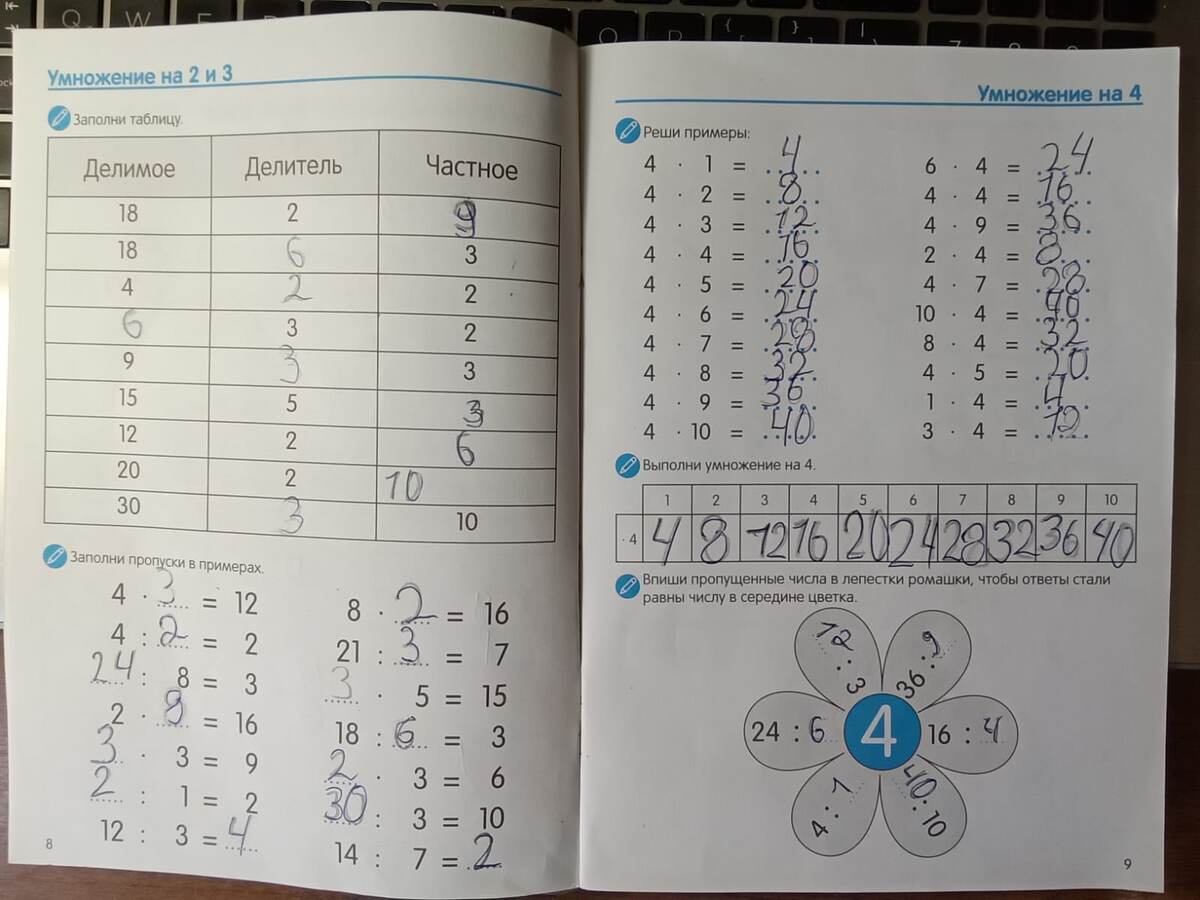 Умножение на 2 и 3
Заполни таблицу.
Делимое Делитель Частное
18 2 9
18 6 3
4 2 2
6 3 2
9 3 3
15 5 3
12 2 6
20 2 10
30 3 10
Заполни пропуски в примерах.
4 · 3 = 12
4 : 2 = 2
24 : 8 = 3
2 · 8 = 16
3 · 3 = 9
2 : 1 = 2
12 : 3 = 4
8 · 2 = 16
21 : 3 = 7
3 · 5 = 15
18 : 6 = 3
2 · 3 = 6
30 : 3 = 10
14 : 7 = 2
8
Умножение на 4
Реши примеры:
4 · 1 = 4
4 · 2 = 8
4 · 3 = 12
4 · 4 = 16
4 · 5 = 20
4 · 6 = 24
4 · 7 = 28
4 · 8 = 32
4 · 9 = 36
4 · 10 = 40
6 · 4 = 24
4 · 4 = 16
4 · 9 = 36
2 · 4 = 8
4 · 7 = 28
10 · 4 = 40
8 · 4 = 32
4 · 5 = 20
1 · 4 = 4
3 · 4 = 12
Выполни умножение на 4.
1 2 3 4 5 6 7 8 9 10
· 4 4 8 12 16 20 24 28 32 36 40
Впиши пропущенные числа в лепестки ромашки, чтобы ответы стали
равны числу в середине цветка.
12 : 3
36 : 9
24 : 6
4
16 : 4
4 : 1
40 : 10
9